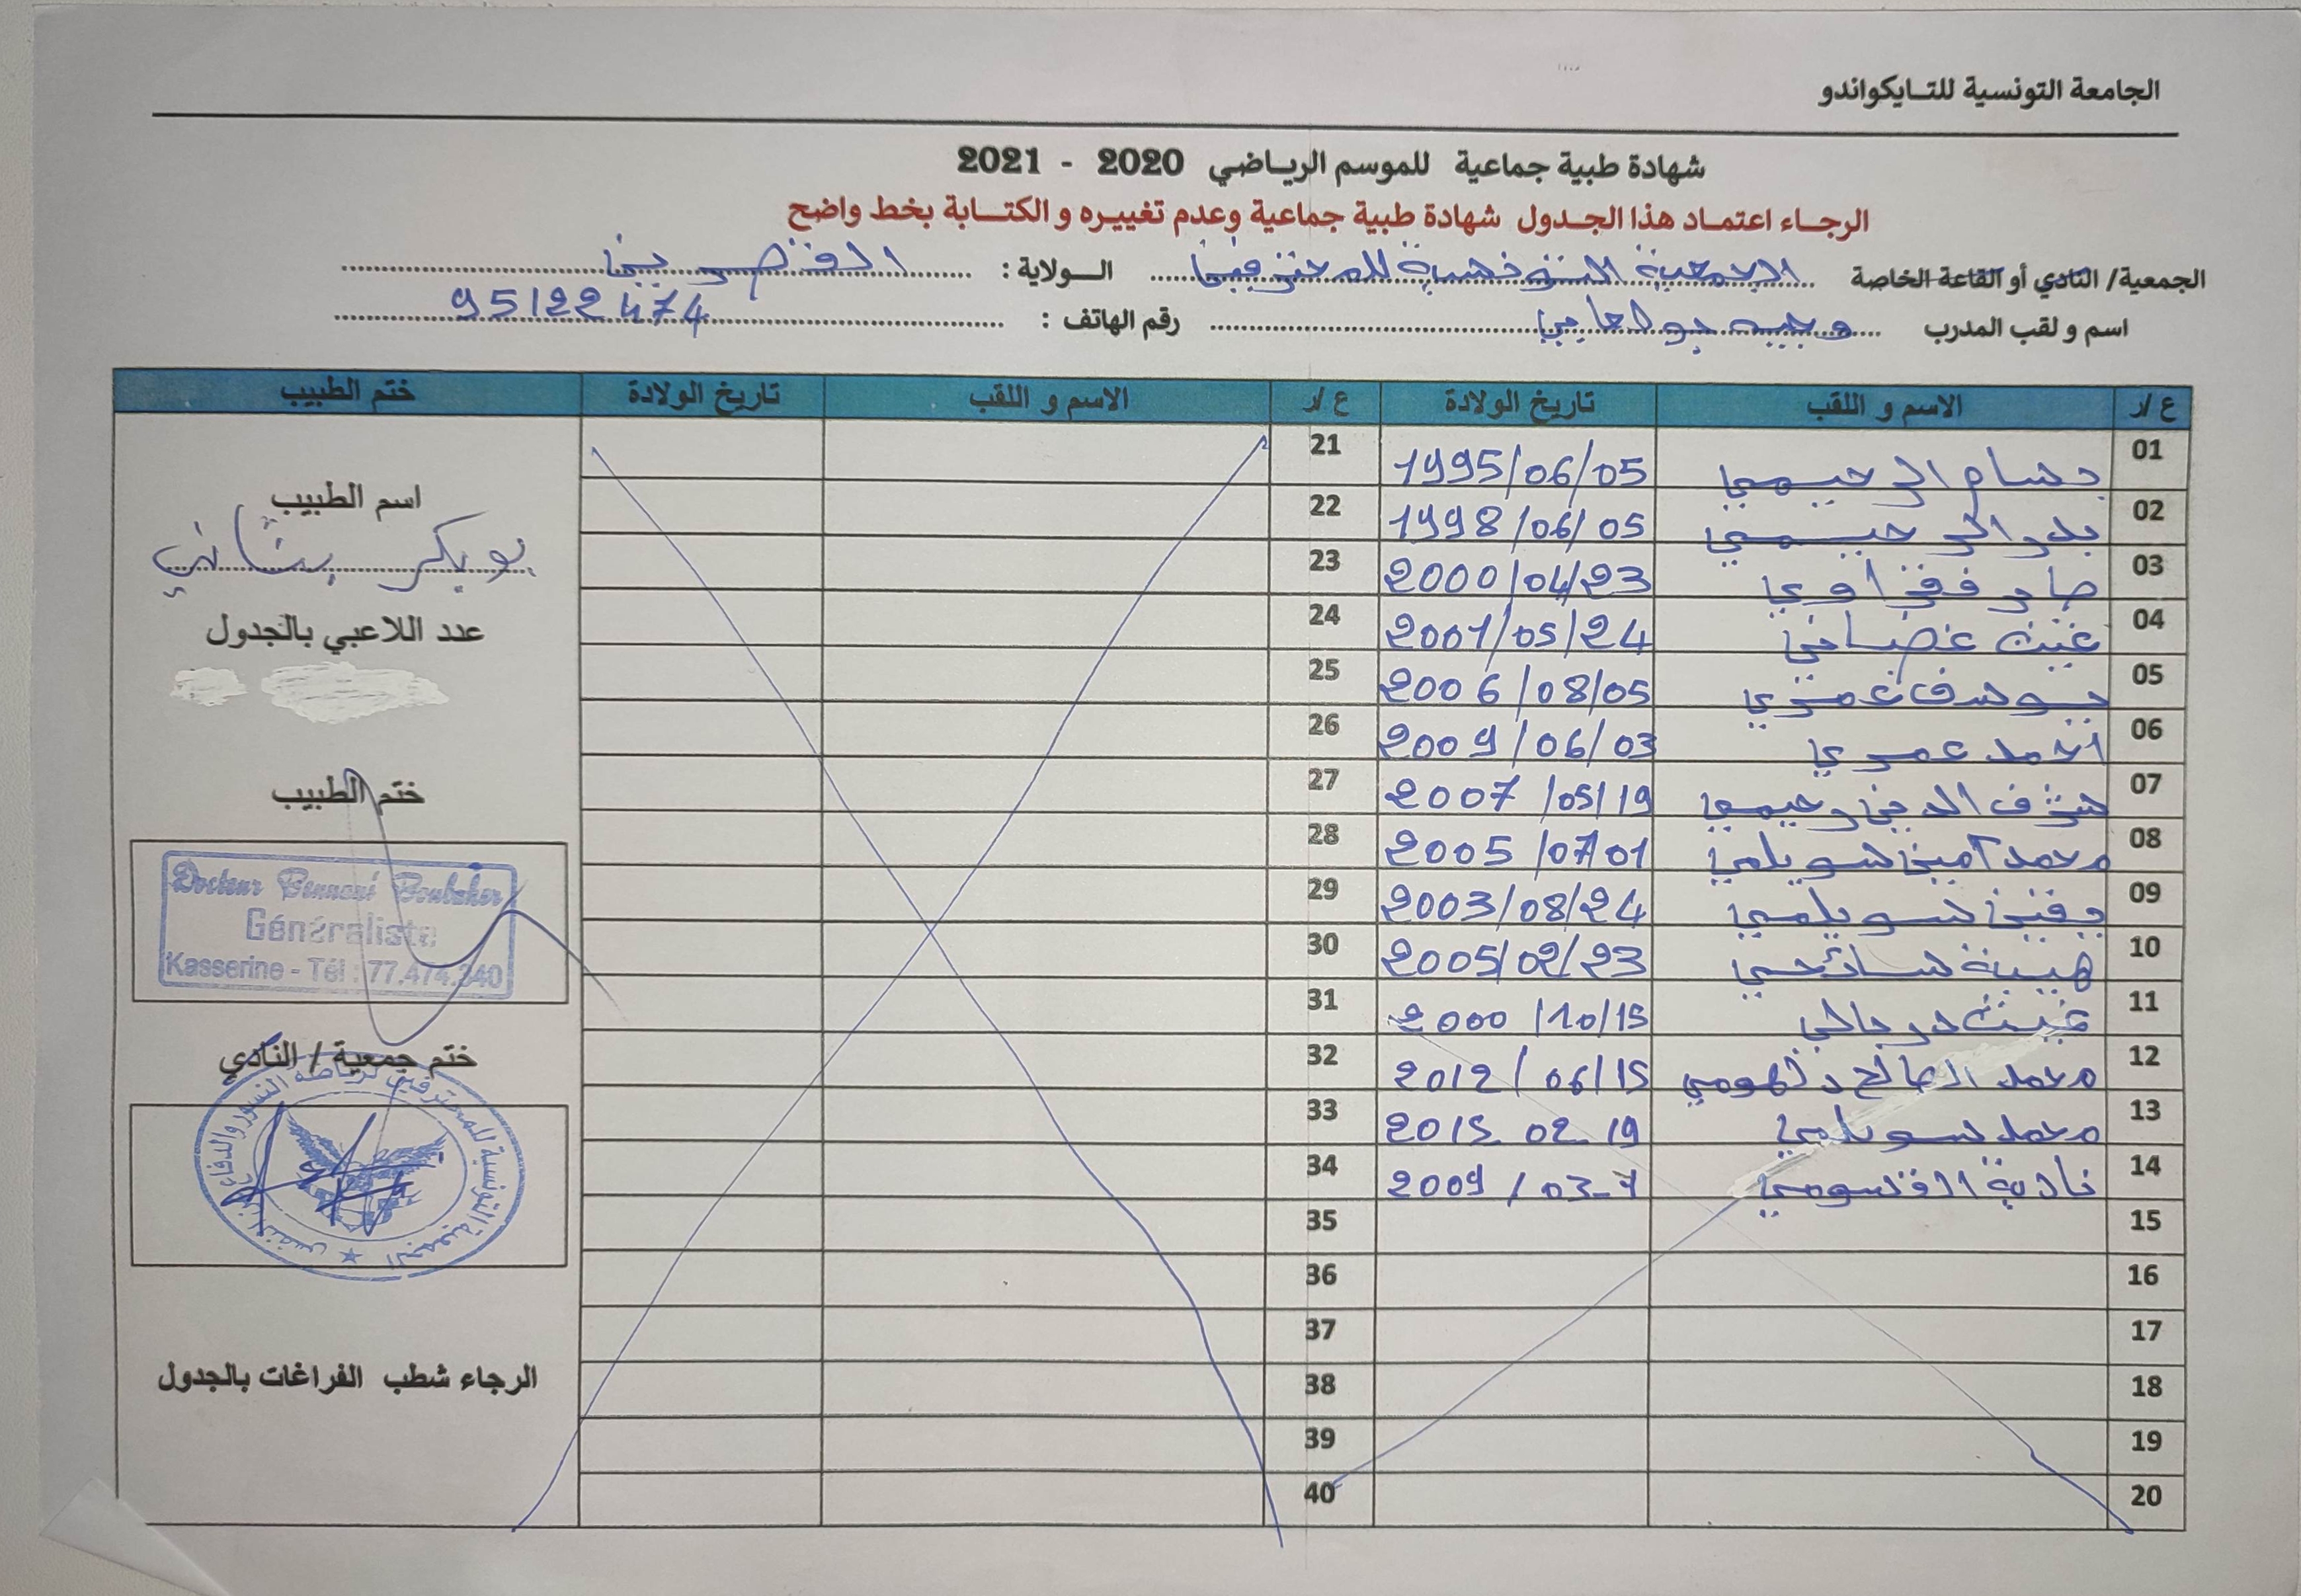 الجامعة التونسية للتايكواندو
شهادة طبية جماعية للموسم الرياضي 2020 - 2021
الرجاء اعتماد هذا الجدول شهادة طبية جماعية وعدم تغييره و الكتابة بخط واضح
الجمعية/ النادي أو القاعة الخاصة الجمعية التونسية للمحترفين الـولاية : القصرين
اسم و لقب المدرب وجيه بولعابي رقم الهاتف : 95122474
ع /ر الاسم و اللقب تاريخ الولادة ع /ر الاسم و اللقب تاريخ الولادة ختم الطبيب
01 بسام الرحيمي 1995/06/05 21
02 بدر الرحيمي 1998/06/05 22
03 2000/04/23 23
04 غيث غضباني 2001/05/24 24
05 يوسف عمري 2006/08/05 25
06 احمد عمري 2009/06/03 26
07 شرف الدين رحيمي 2007/05/19 27
08 محمد أمين سويلمي 2005/07/01 28
09 يقين سويلمي 2003/08/24 29
10 هيبة سائحي 2005/02/23 30
11 غيث 2000/10/15 31
12 محمد الصالح 2012/06/15 32
13 محمد سويلمي 2015.02.19 33
14 نادية القسومي 2009/03-7 34
15 35
16 36
17 37
18 38
19 39
20 40
اسم الطبيب
بوبكر بناني
عدد اللاعبي بالجدول
ختم الطبيب
Docteur Bennani Boubaker
Généraliste
Kasserine - Tél : 77.474.340
ختم جمعية / النادي
الجمعية التونسية للمحترفين لرياضة النسور والدفاع عن النفس
الرجاء شطب الفراغات بالجدول